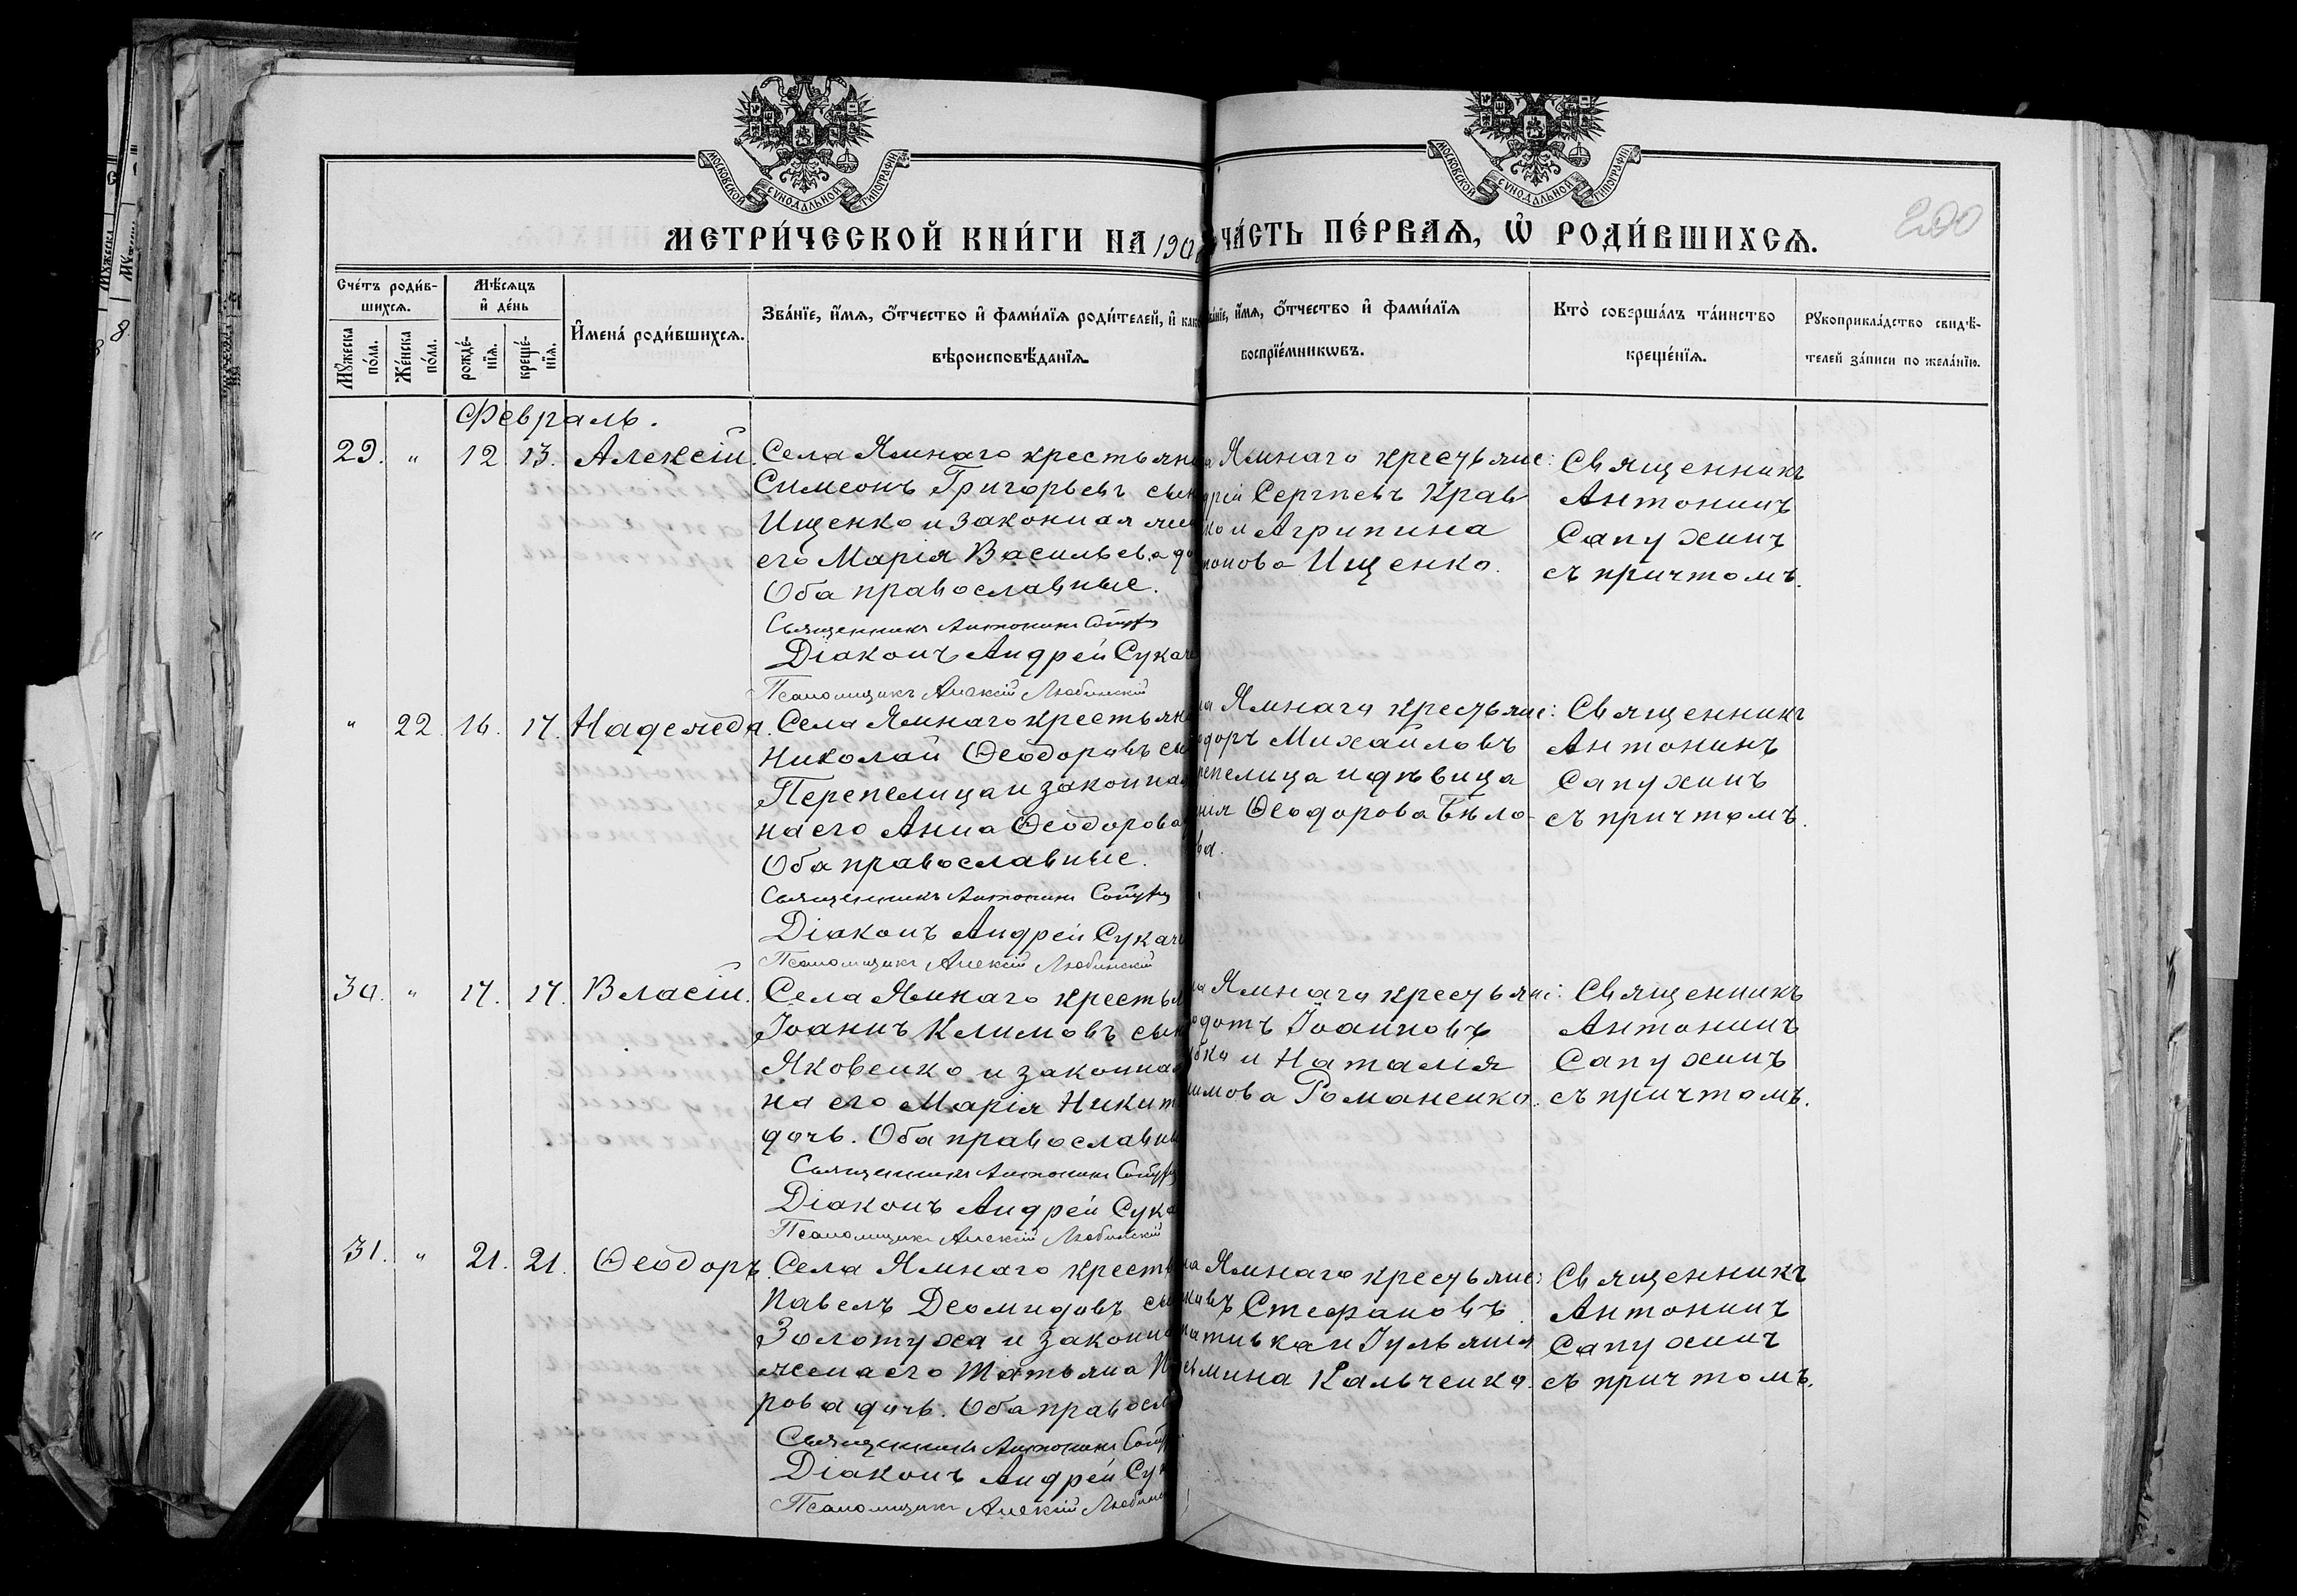 МОСКОВСКОЙ СѴНОДАЛЬНОЙ ТИПОГРАФІИ
МОСКОВСКОЙ СѴНОДАЛЬНОЙ ТИПОГРАФІИ
МЕТРИ́ЧЕСКОЙ КНИ́ГИ НА 190
ЧА́СТЬ ПЕ́РВАѦ, Ѽ РОДИ́ВШИХСѦ.
200
Сче́тъ роди́в-
шихсѧ.
Мѣ́сѧцъ
и҆ де́нь
Мꙋ́жеска по́ла.
Же́нска по́ла.
рожде́-
нїѧ.
креще́-
нїѧ.
И҆мена̀ роди́вшихсѧ.
Зва́нїе, и҆́мѧ, ѻ҆́тчество и҆ фами́лїѧ роди́телей, и҆ како
вѣроисповѣ́данїѧ
и҆́мѧ, ѻ҆́тчество и҆ фами́лїѧ
воспрїе́мникѡвъ.
Кто̀ соверша́лъ та́инство
креще́нїѧ.
Рꙋкоприкла́дство свидѣ́-
телей за́писи по жела́нїю.
Февраль.
29. " 12 13. Алексій.
Села Ямнаго крестьяни
Симеонъ Григорьевъ сын
Ищенко и законная жен
его Марія Васильева до
Оба православные.
Священникъ Антонинъ
Діаконъ Андрей Сукач
Псаломщикъ Алексій Любинскій
Ямнаго крестьяне:
дрій Сергѣевъ Крав
ко и Агрипина
монова Ищенко.
Священникъ
Антонинъ
Сапухинъ
съ причтомъ.
" 22. 16. 17. Надежда.
Села Ямнаго крестьяни
Николай Ѳеодоровъ сы
Перепелица и законная
на его Анна Ѳеодорова
Оба православные.
Священникъ Антонинъ
Діаконъ Андрей Сукач
Псаломщикъ Алексій Любинскій
ла Ямнаго крестьяне:
одоръ Михайловъ
репелица и дѣвица
нія Ѳеодорова Бѣло-
ва.
Священникъ
Антонинъ
Сапухинъ
съ причтомъ.
30. " 17. 17. Власій.
Села Ямнаго крестья
Іоаннъ Климовъ сын
Яковенко и законная
на его Марія Никит
дочь. Оба православны
Священникъ Антонинъ
Діаконъ Андрей Сука
Псаломщикъ Алексій Любинскій
ла Ямнаго крестьяне:
одотъ Іоанновъ
бка и Наталія
имова Романенко.
Священникъ
Антонинъ
Сапухинъ
съ причтомъ.
31. " 21. 21. Ѳеодоръ.
Села Ямнаго кресть
Павелъ Деомидовъ сы
Золотуха и законна
жена его Татьяна П
рова дочь. Оба правосл
Священникъ Антонинъ
Діаконъ Андрей Сук
Псаломщикъ Алексій Любинс
ла Ямнаго крестьяне:
ковъ Стефановъ
патька и Іульянія
сьмина Кальченко.
Священникъ
Антонинъ
Сапухинъ
съ причтомъ.